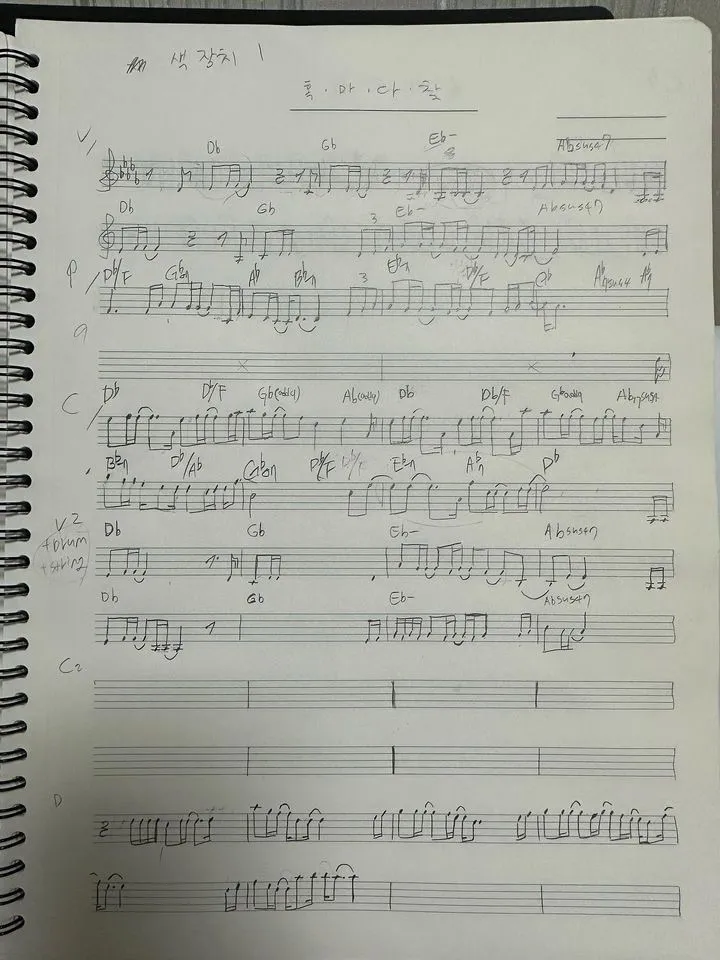 색 장치 1
혹 · 마 · 다 · 찾
V1
Db Gb Eb- Absus47
Db Gb 3 Eb- Absus47
P
Db/F Gb Ab Bb-7 3 Eb-7 Db/F Gb Ab7sus4 A7
9
x x
C
Db Db/F Gb(add9) Ab(add9) Db Db/F Gbadd9 Ab7sus4
Bb-7 Db/Ab Gb Db/F Db/F Eb-7 Ab7 Db
V2
+Drum
+string
Db Gb Eb- Absus47
Db Gb Eb- Absus47
C2
D